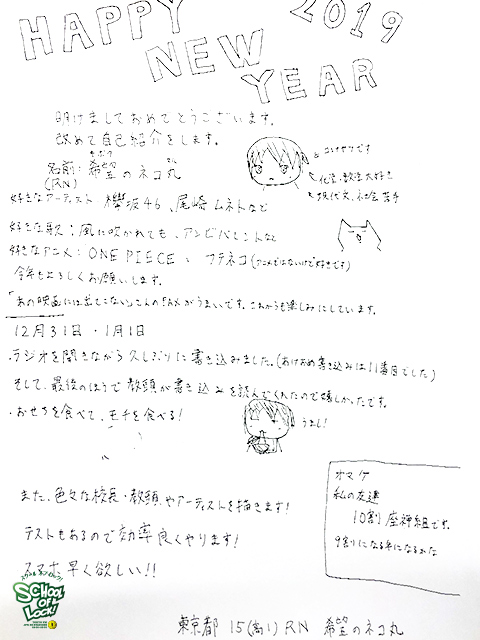 HAPPY 2019
NEW
YEAR
明けましておめでとうございます。
改めて自己紹介をします。
きぼう
名前:希望のネコ丸
(RN)
化学・数学大好き
現代文、社会苦手
好きなアーティスト 欅坂46、尾崎ムネトなど
好きな歌:風に吹かれても、アンビバレントなど
好きなアニメ:ONE PIECE、フテネコ(アニメではないけど好きです)
今年もよろしくお願いします。
「あの映画には出てこない」さんのFAXがうまいです。これからも楽しみにしています。
12月31日・1月1日
・ラジオを聞きながら久しぶりに書き込みました。(あけおめ書き込みは11番目でした)
そして、最後のほうで教頭が書き込みを読んでくれたので嬉しかったです。
・おせちを食べて、モチを食べる!
うまし!
また、色々な校長・教頭、やアーティストを描きます!
テストもあるので効率良くやります!
スマホ早く欲しい!!
オマケ
私の友達
10割座神組です。
9割になる年になるかな
SCHOOL OF LOCK!
東京都 15(高1) RN 希望のネコ丸